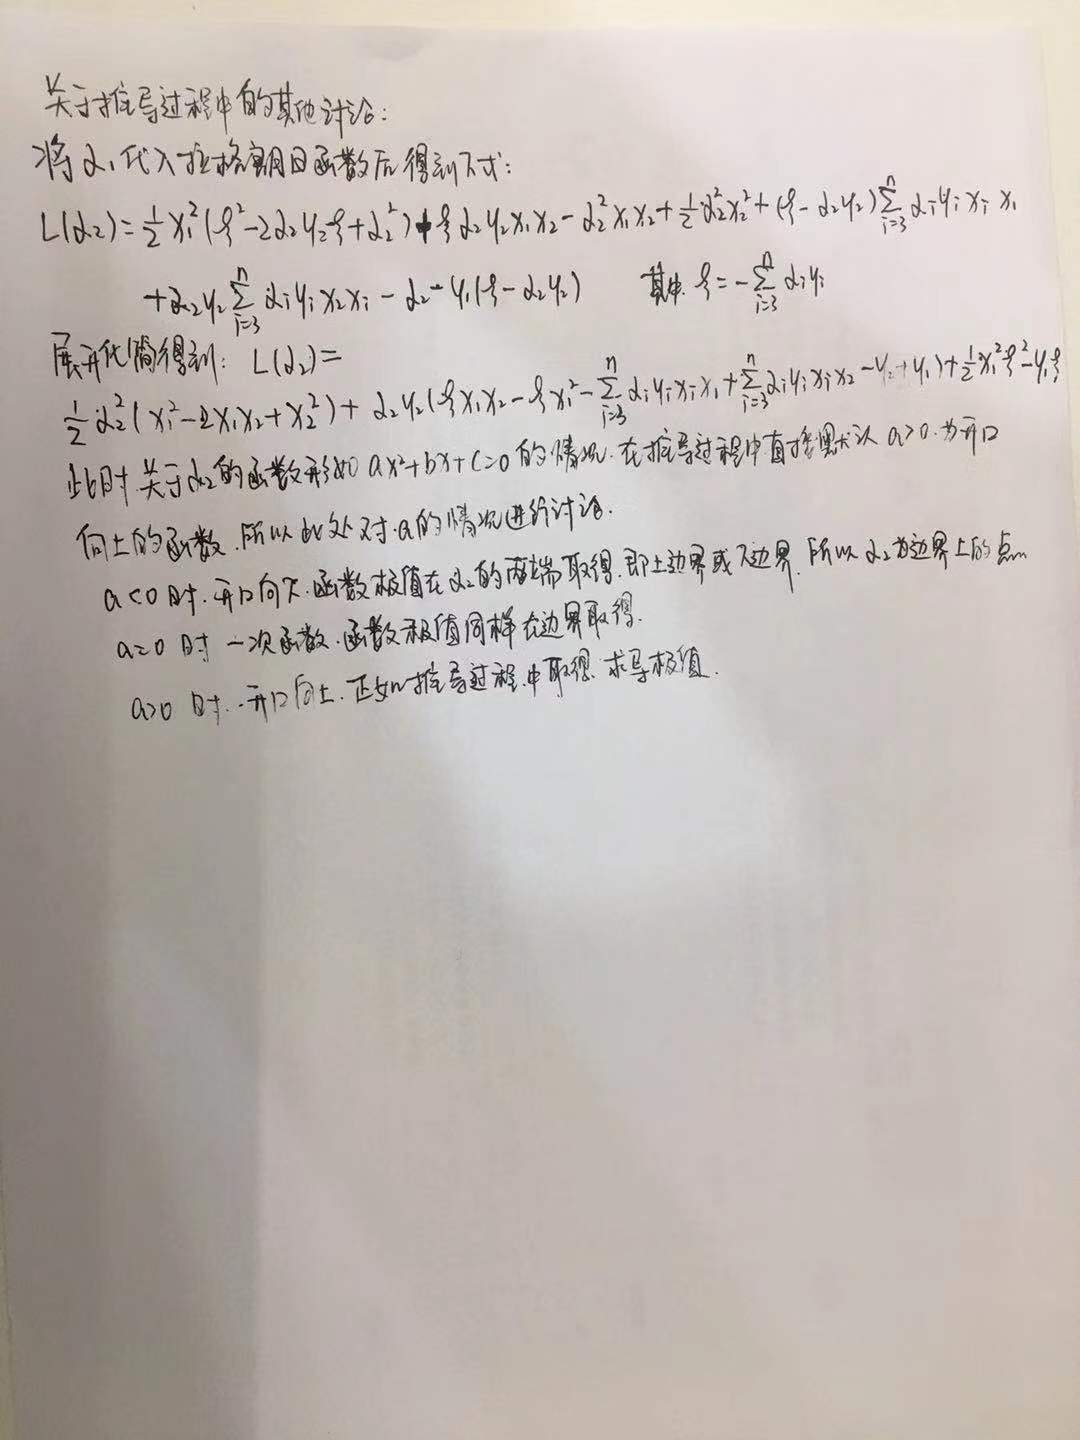 关于推导过程中的其他讨论:
将α₁代入拉格朗日函数后得到下式:
L(α₂)=½x₁²(ξ²-2α₂y₂ξ+α₂²)+ξα₂y₂x₁x₂-α₂²x₁x₂+½α₂²x₂²+(ξ-α₂y₂)∑ⁿᵢ₌₃αᵢyᵢxᵢx₁
+α₂y₂∑ⁿᵢ₌₃αᵢyᵢx₂xᵢ-α₂-y₁(ξ-α₂y₂) 其中 ξ=-∑ⁿᵢ₌₃αᵢyᵢ
展开化简得到: L(α₂)=
½α₂²(x₁²-2x₁x₂+x₂²)+α₂y₂(ξx₁x₂-ξx₁²-∑ⁿᵢ₌₃αᵢyᵢxᵢx₁+∑ⁿᵢ₌₃αᵢyᵢxᵢx₂-y₂+y₁)+½x₁²ξ²-y₁ξ
此时.关于α₂的函数形如ax²+bx+c=0的情况.在推导过程中直接默认a>0.为开口
向上的函数.所以此处对a的情况进行讨论.
a<0时.开口向下.函数极值在α₂的两端取得.即上边界或下边界.所以α₂为边界上的点
a=0时 一次函数.函数极值同样在边界取得.
a>0时.开口向上.正如推导过程中取得.求导极值.